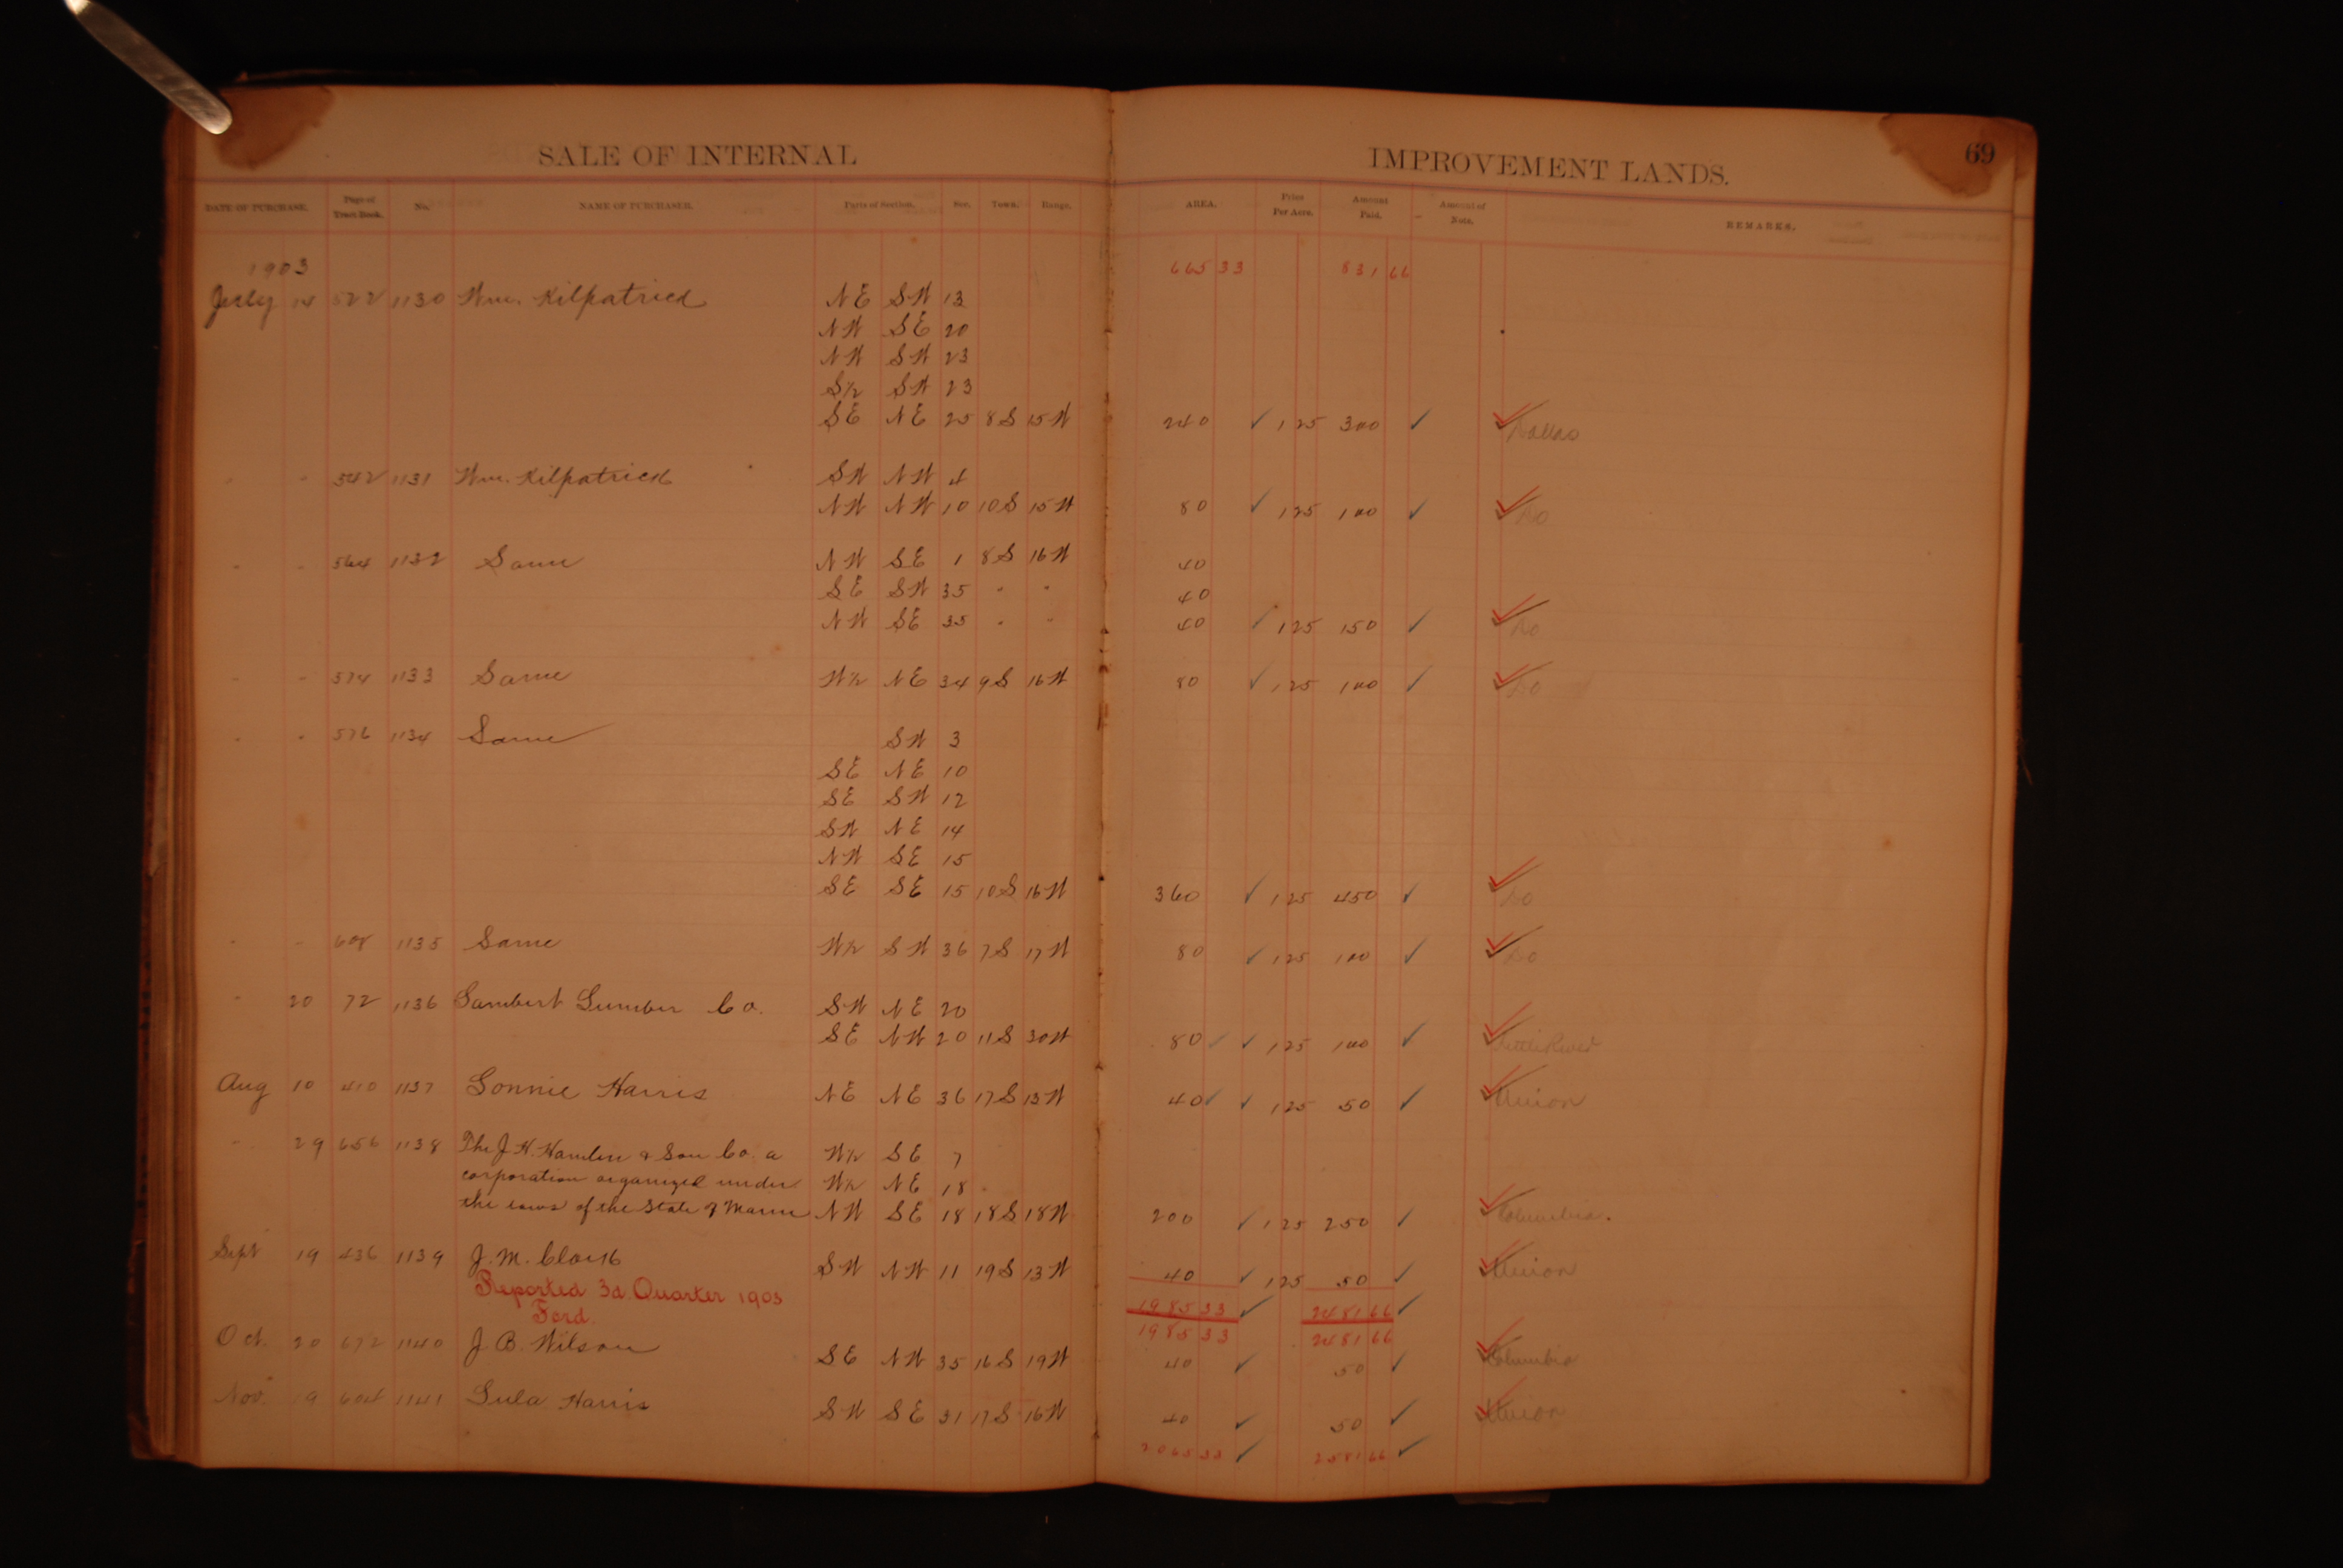 SALE OF INTERNAL IMPROVEMENT LANDS. 69
DATE OF PURCHASE. Page of Tract Book. No. NAME OF PURCHASER. Parts of Section. Sec. Town. Range. AREA. Price Per Acre. Amount Paid. Amount of Note. REMARKS.
1903 665 33 831 66
July 14 522 1130 Wm. Kilpatrick NE SW 13
NW SE 20
NW SW 23
S½ SW 23
SE NE 25 8S 15W 240 ✓ 1 25 300 ✓ Dallas
" " 542 1131 Wm. Kilpatrick SW NW 4
NW NW 10 10S 15W 80 ✓ 1 25 100 ✓ Do
" " 564 1132 Same NW SE 1 8S 16W 40
SE SW 35 " " 40
NW SE 35 " " 40 ✓ 1 25 150 ✓ Do
" " 574 1133 Same W½ NE 34 9S 16W 80 ✓ 1 25 100 ✓ Do
" " 576 1134 Same SW 3
SE NE 10
SE SW 12
SW NE 14
NW SE 15
SE SE 15 10S 16W 360 ✓ 1 25 450 ✓ Do
" " 608 1135 Same W½ SW 36 7S 17W 80 ✓ 1 25 100 ✓ Do
" 20 72 1136 Lambert Lumber Co. SW NE 20
SE NW 20 11S 30W 80 ✓ ✓ 1 25 100 ✓ Little River
Aug 10 410 1137 Lonnie Harris NE NE 36 17S 13W 40 ✓ ✓ 1 25 50 ✓ Union
" 29 656 1138 The J. H. Hamlen & Son Co. a W½ SE 7
corporation organized under W½ NE 18
the laws of the State of Maine NW SE 18 18S 18W 200 ✓ 1 25 250 ✓ Columbia.
Sept 19 436 1139 J. M. Clark SW NW 11 19S 13W 40 ✓ 1 25 50 ✓ Union
Reported 3d Quarter 1903 1985 33 ✓ 2481 66 ✓
Ford. 1985 33 2481 66
Oct. 20 672 1140 J. B. Wilson SE NW 35 16S 19W 40 ✓ 50 ✓ Columbia
Nov. 19 604 1141 Lula Harris SW SE 31 17S 16W 40 ✓ 50 ✓ Union
2065 33 ✓ 2581 66 ✓